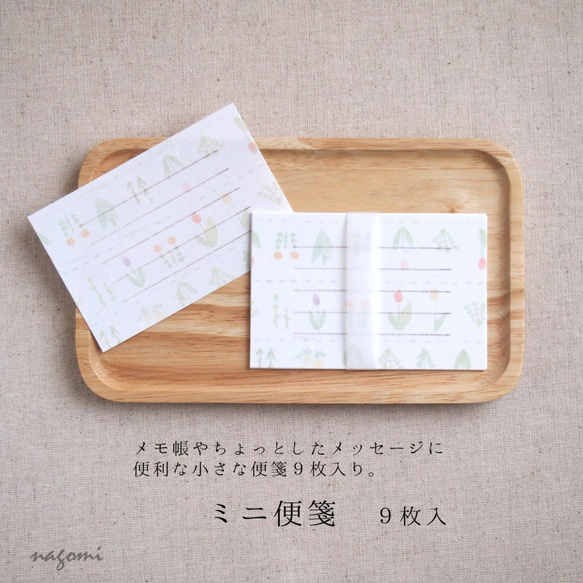 メモ帳やちょっとしたメッセージに
便利な小さな便箋９枚入り。
ミニ便箋　９枚入
nagomi